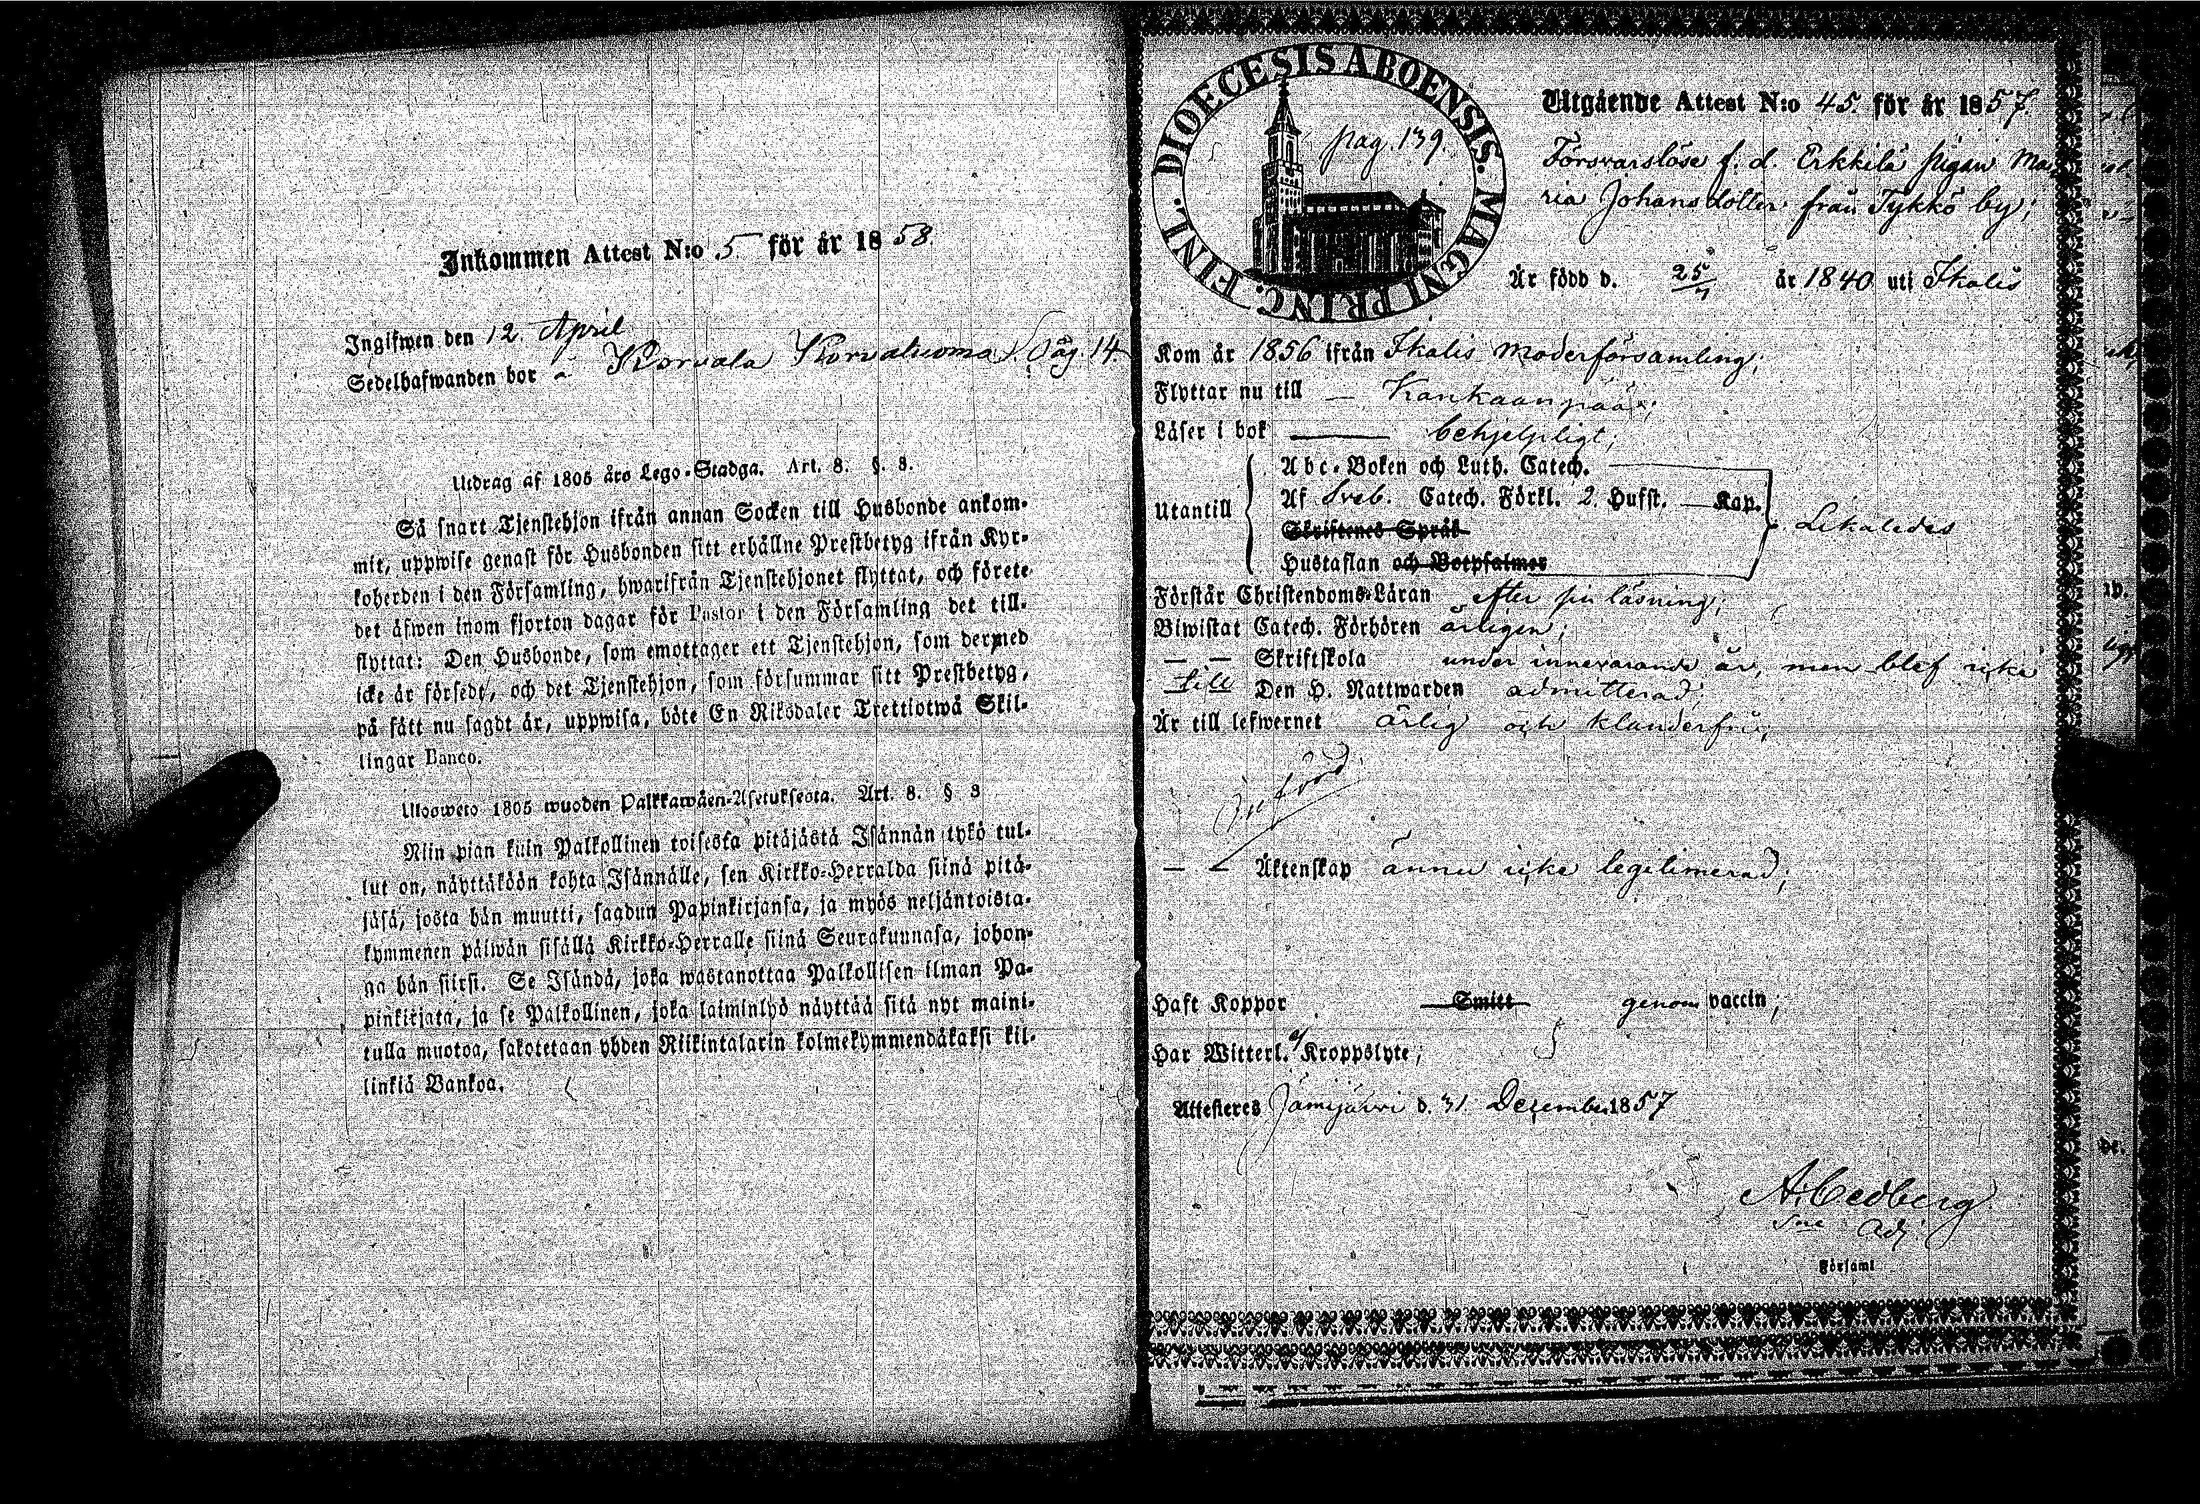 Inkommen Attest N:o 5 för år 1858.
Ingifwen den 12. April
Sedelhafwanden bor å Korvala Korvaluoma Pag. 14.
Utdrag af 1805 års Lego-Stadga. Art. 8. §. 8.
Så snart Tjenstehjon ifrån annan Socken till Husbonde ankom-
mit, uppwise genast för Husbonden sitt erhållne Prestbetyg ifrån Kyr-
koherden i den Församling, hwarifrån Tjenstehjonet flyttat, och förete
det äfwen inom fjorton dagar för Pastor i den Församling det till-
flyttat: Den Husbonde, som emottager ett Tjenstehjon, som dermed
icke är försedt, och det Tjenstehjon, som försummar sitt Prestbetyg,
på sätt nu sagdt är, uppwisa, böte En Riksdaler Trettiotwå Skil-
lingar Banco.
Ulosweto 1805 wuoden Palkkawäen-Asetuksesta. Art. 8. § 8
Niin pian kuin Palkollinen toisesta pitäjästä Isännän tykö tul-
lut on, näyttäköön kohta Isännälle, sen Kirkko-Herralda siinä pitä-
jäsä, josta hän muutti, saadun Papinkirjansa, ja myös neljäntoista-
kymmenen päiwän sisällä Kirkko-Herralle siinä Seurakunnasa, johon-
ga hän siirsi. Se Isändä, joka wastanottaa Palkollisen ilman Pa-
pinkirjata, ja se Palkollinen, joka laiminlyö näyttää sitä nyt maini-
tulla muotoa, sakotetaan yhden Riikintalarin kolmekymmendäkaksi kil-
linkiä Bankoa.
DIOECESIS ABOENSIS. MAGNI PRINC. FINL.
pag. 139.
Utgående Attest N:o 45. för år 1857.
Försvarslöse f. d. Erkkilä pigan Ma-
ria Johansdotter från Tykkö by;
Är född d. 25/7 år 1840 uti Ikalis
Kom år 1856 ifrån Ikalis moderförsamling;
Flyttar nu till — Kankaanpää;
Läser i bok — behjelpligt;
Utantill
Abc-Boken och Luth. Catech.
Af Sveb. Catech. Förkl. 2. Hufst. — Kap.
Skriftenes Språk
Hustaflan och Botpsalmer
Likaledes
Förstår Christendoms-Läran efter sin läsning;
Biwistat Catech. Förhören årligen;
— — Skriftskola under innevarande år, men blef icke
till Den H. Nattwarden admitterad;
Är till lefwernet ärlig och klanderfri;
Införd
— — Äktenskap ännu icke legitimerad;
Haft Koppor Smitt genom vaccin;
Har Witterl. ej Kroppslyte;
Attesteres Jämijärvi d. 31 Dezember 1857
A. Cedberg
Adj
Församl